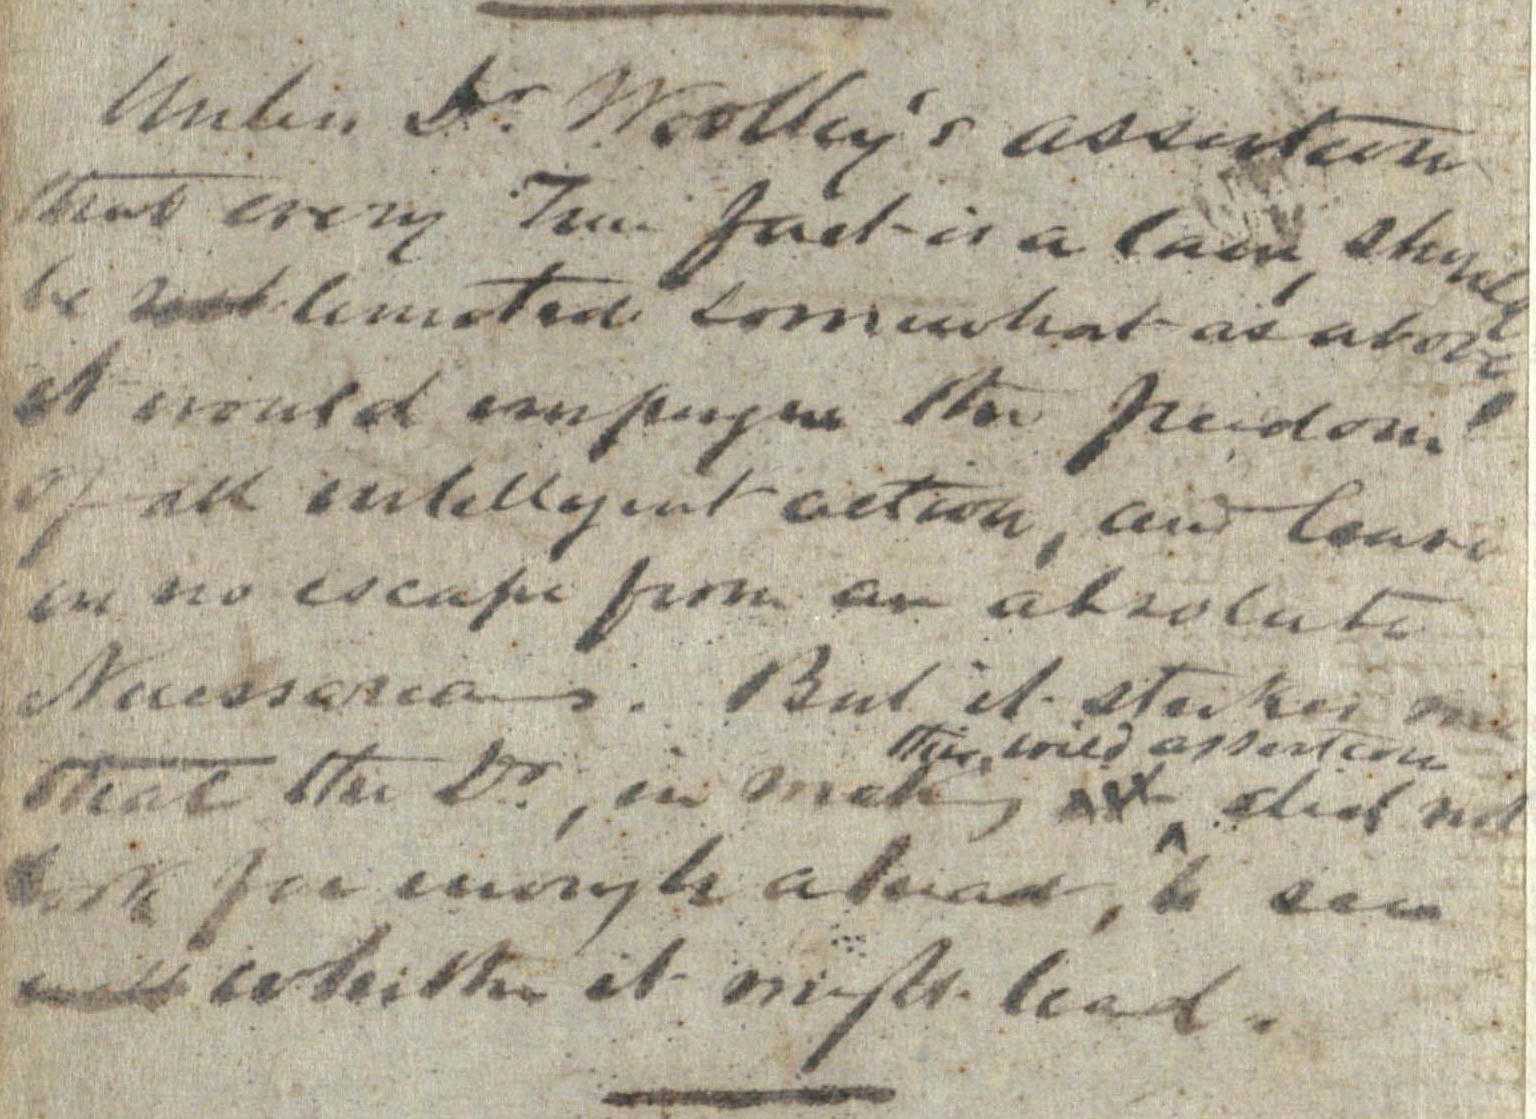 Unless Dr. Woolley's assertion
that every True fact is a law, should
be limited somewhat as above,
it would impugn the freedom
of all intelligent action, and leave
us no escape from an absolute
Necessarians. But it strikes me
this wild assertion
that the Dr, in making did not
look far enough ahead, to see
whither it might lead.